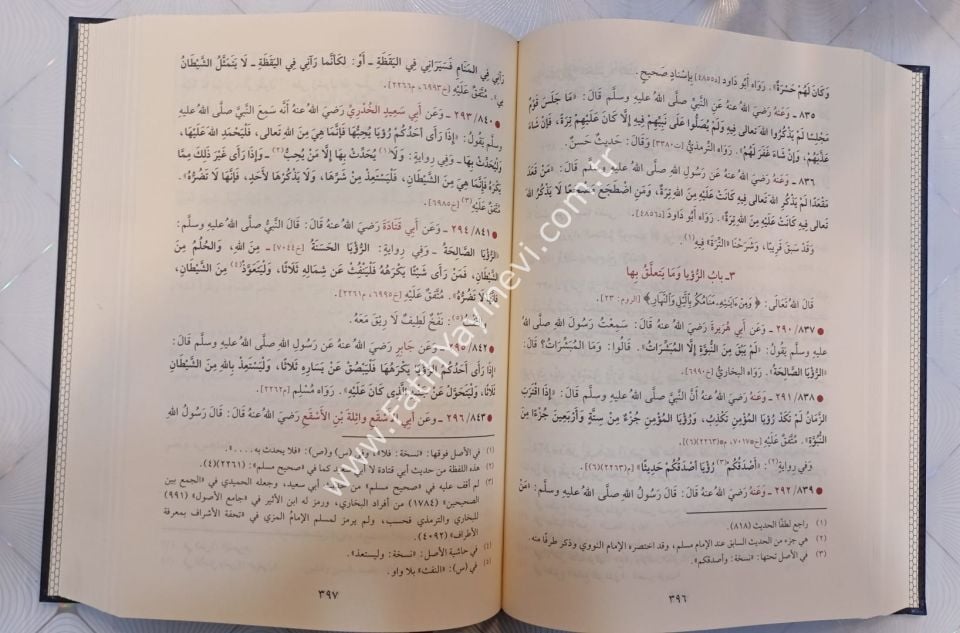 وَكَانَ لَهُمْ حَسْرَةً». رَوَاه أَبُو دَاود [د٤٨٥٥] بِإِسْنَادٍ صَحِيحٍ.
٨٣٥ ـ وَعَنهُ رَضيَ اللهُ عنهُ عَنِ النَّبيِّ صلَّى اللهُ عليهِ وسلَّم قَالَ: «مَا جَلَسَ قَوْمٌ
مَجْلِسًا لَمْ يَذْكُرُوا اللهَ تَعالى فِيهِ وَلَمْ يُصَلُّوا عَلَى نَبِيِّهِمْ فِيهِ إِلَّا كَانَ عَلَيْهِمْ تِرَةٌ، فَإِنْ شَاءَ
عَذَّبَهُمْ، وَإِنْ شَاءَ غَفَرَ لَهُمْ». رَوَاهُ التِّرمذيُّ [ت٣٣٨٠] وَقَالَ: حَديثٌ حسَنٌ.
٨٣٦ ـ وَعَنهُ رَضيَ اللهُ عنهُ عَن رَسُولِ اللهِ صلَّى اللهُ عليهِ وسلَّم قَالَ: «مَن قَعَدَ
مَقْعَدًا لَمْ يَذْكُرِ اللهَ تَعالى فِيهِ كَانَتْ عَلَيْهِ مِنَ اللهِ تِرَةٌ، وَمَنِ اضْطَجَعَ مَضْجَعًا لَا يَذْكُرُ اللهَ
تَعالى فِيهِ كَانَتْ عَلَيْهِ مِنَ اللهِ تِرَةٌ». رَوَاهُ أَبُو دَاودَ [د٤٨٥٦].
وَقَدْ سَبَقَ قَرِيبًا، وَشَرَحْنَا «التِّرَةَ» فِيهِ(١).
٣ـ بابُ الرُّؤيا وَمَا يتَعلَّقُ بِها
قَالَ اللهُ تَعَالَى: ﴿ وَمِنْ ءَايَٰتِهِۦ مَنَامُكُم بِٱلَّيْلِ وَٱلنَّهَارِ ﴾ [الروم: ٢٣].
٢٩٠/٨٣٧ ـ وَعَن أَبي هُرَيرَةَ رَضيَ اللهُ عنهُ قَالَ: سَمِعْتُ رَسُولَ اللهِ صلَّى اللهُ
عليهِ وسلَّم يَقُولُ: «لَمْ يَبْقَ مِنَ النُّبُوَّةِ إِلَّا المُبَشِّرَاتُ». قَالُوا: وَمَا المُبَشِّرَاتُ؟ قَالَ:
«الرُّؤْيَا الصَّالِحَةُ». رَوَاه البخاريُّ [خ٦٩٩٠].
٢٩١/٨٣٨ ـ وَعَنهُ رَضيَ اللهُ عنهُ أَنَّ النَّبيَّ صلَّى اللهُ عليهِ وسلَّم قَالَ: «إِذَا اقْتَرَبَ
الزَّمَانُ لَمْ تَكَدْ رُؤيَا المُؤمِنِ تَكْذِبُ، وَرُؤيَا المُؤمِنِ جُزْءٌ مِنْ سِتَّةٍ وَأَرْبَعِينَ جُزْءًا مِنَ
النُّبُوَّةِ». مُتَّفَقٌ عَلَيْهِ [خ٧٠١٧، م٢٢٦٣(٦)].
وَفي رِوَايةٍ(٢): «أَصدَقُكُمْ(٣) رُؤْيَا أَصدَقُكُمْ حَدِيثًا» [م٢٢٦٣(٦)].
٢٩٢/٨٣٩ ـ وَعَنهُ رَضيَ اللهُ عنهُ قَالَ: قَالَ رَسُولُ اللهِ صلَّى اللهُ عليهِ وسلَّم: «مَنْ
(١) راجع لطفًا الحديث (٨١٨).
(٢) هي جزء من الحديث السابق عند الإمام مسلم، وقد اختصره الإمام النووي وذكر طرفًا منه.
(٣) في الأصل تحتها: «نسخة: وأصدقكم».
٣٩٦
رَآنِي فِي المَنَامِ فَسَيَرَانِي فِي اليَقَظَةِ ـ أَوْ: لَكَأَنَّمَا رَآنِي فِي اليَقَظَةِ ـ لَا يَتَمَثَّلُ الشَّيْطَانُ
بِي». مُتَّفَقٌ عَلَيْهِ [خ٦٩٩٣، م٢٢٦٦].
٢٩٣/٨٤٠ ـ وَعَن أَبي سَعِيدٍ الخُدْرِيِّ رَضيَ اللهُ عنهُ أَنَّهُ سَمِعَ النَّبيَّ صلَّى اللهُ عليهِ
وسلَّم يَقُولُ: «إِذَا رَأَى أَحَدُكُمْ رُؤيَا يُحِبُّهَا فَإِنَّمَا هِيَ مِنَ اللهِ تعالى، فَلْيَحْمَدِ اللهَ عَلَيْهَا،
وَلْيُحَدِّثْ بِهَا ـ وَفي رِوايةٍ: وَلَا(١) يُحَدِّثْ بِهَا إِلَّا مَنْ يُحِبُّ(٢) ـ وَإِذَا رَأَى غَيْرَ ذَلِكَ مِمَّا
يَكْرَهُ فَإِنَّمَا هِيَ مِنَ الشَّيْطَانِ، فَلْيَسْتَعِذْ مِنْ شَرِّهَا، وَلَا يَذْكُرْهَا لِأَحَدٍ، فَإِنَّهَا لَا تَضُرُّهُ».
مُتَّفَقٌ عَلَيْهِ(٣) [خ٦٩٨٥].
٢٩٤/٨٤١ ـ وَعَن أَبي قَتَادَةَ رَضيَ اللهُ عنهُ قَالَ: قَالَ النَّبيُّ صلَّى اللهُ عليهِ وسلَّم:
«الرُّؤْيَا الصَّالِحَةُ ـ وَفي رِوايةٍ: الرُّؤْيَا الحَسَنَةُ [خ٧٠٤٤] ـ مِنَ اللهِ، وَالحُلُمُ مِنَ
الشَّيْطَانِ، فَمَنْ رَأَى شَيْئًا يَكْرَهُهُ فَلْيَنْفُثْ عَنْ شِمَالِهِ ثَلَاثًا، وَلْيَتَعَوَّذْ(٤) مِنَ الشَّيْطَانِ،
فَإِنَّهَا لَا تَضُرُّهُ». مُتَّفَقٌ عَلَيْهِ [خ٦٩٩٥، م٢٢٦١].
«النَّفْثُ»(٥): نَفْخٌ لَطِيفٌ لَا رِيقَ مَعَهُ.
٢٩٥/٨٤٢ ـ وَعَن جَابِرٍ رَضيَ اللهُ عنهُ عَن رَسُولِ اللهِ صلَّى اللهُ عليهِ وسلَّم قَالَ:
«إِذَا رَأَى أَحَدُكُمُ الرُّؤْيَا يَكْرَهُهَا فَلْيَبْصُقْ عَنْ يَسَارِهِ ثَلَاثًا، وَلْيَسْتَعِذْ بِاللهِ مِنَ الشَّيْطَانِ
ثَلَاثًا، وَلْيَتَحَوَّلْ عَنْ جَنْبِهِ الَّذِي كَانَ عَلَيْهِ». رَوَاهُ مُسْلِم [م٢٢٦٢].
٢٩٦/٨٤٣ ـ وَعَن أَبي الأَسْقَعِ وَاثِلَةَ بْنِ الأَسْقَعِ رَضيَ اللهُ عنهُ قَالَ: قَالَ رَسُولُ اللهِ
(١) في الأصل فوقها: «نسخة: فلا»، وفي (س) و(ص): «فلا يحدث به....».
(٢) هذه اللفظة من حديث أبي قتادة لا أبي سعيد كما في «صحيح مسلم» (٢٢٦١)(٤).
(٣) لم أقف عليه في «صحيح مسلم» من حديث أبي سعيد، وجعله الحميدي في «الجمع بين
الصحيحين» (١٧٨٤) من أفراد البخاري، ورمز له ابن الأثير في «جامع الأصول» (٩٩١)
للبخاري والترمذي فحسب، ولم يرمز لمسلم الإمامُ المزي في «تحفة الأشراف بمعرفة
الأطراف» (٤٠٩٢).
(٤) في حاشية الأصل: «نسخة: وليستعذ».
(٥) في (ص): «النفث» بلا واو.
٣٩٧
www.Fatihyayinevi.com.tr